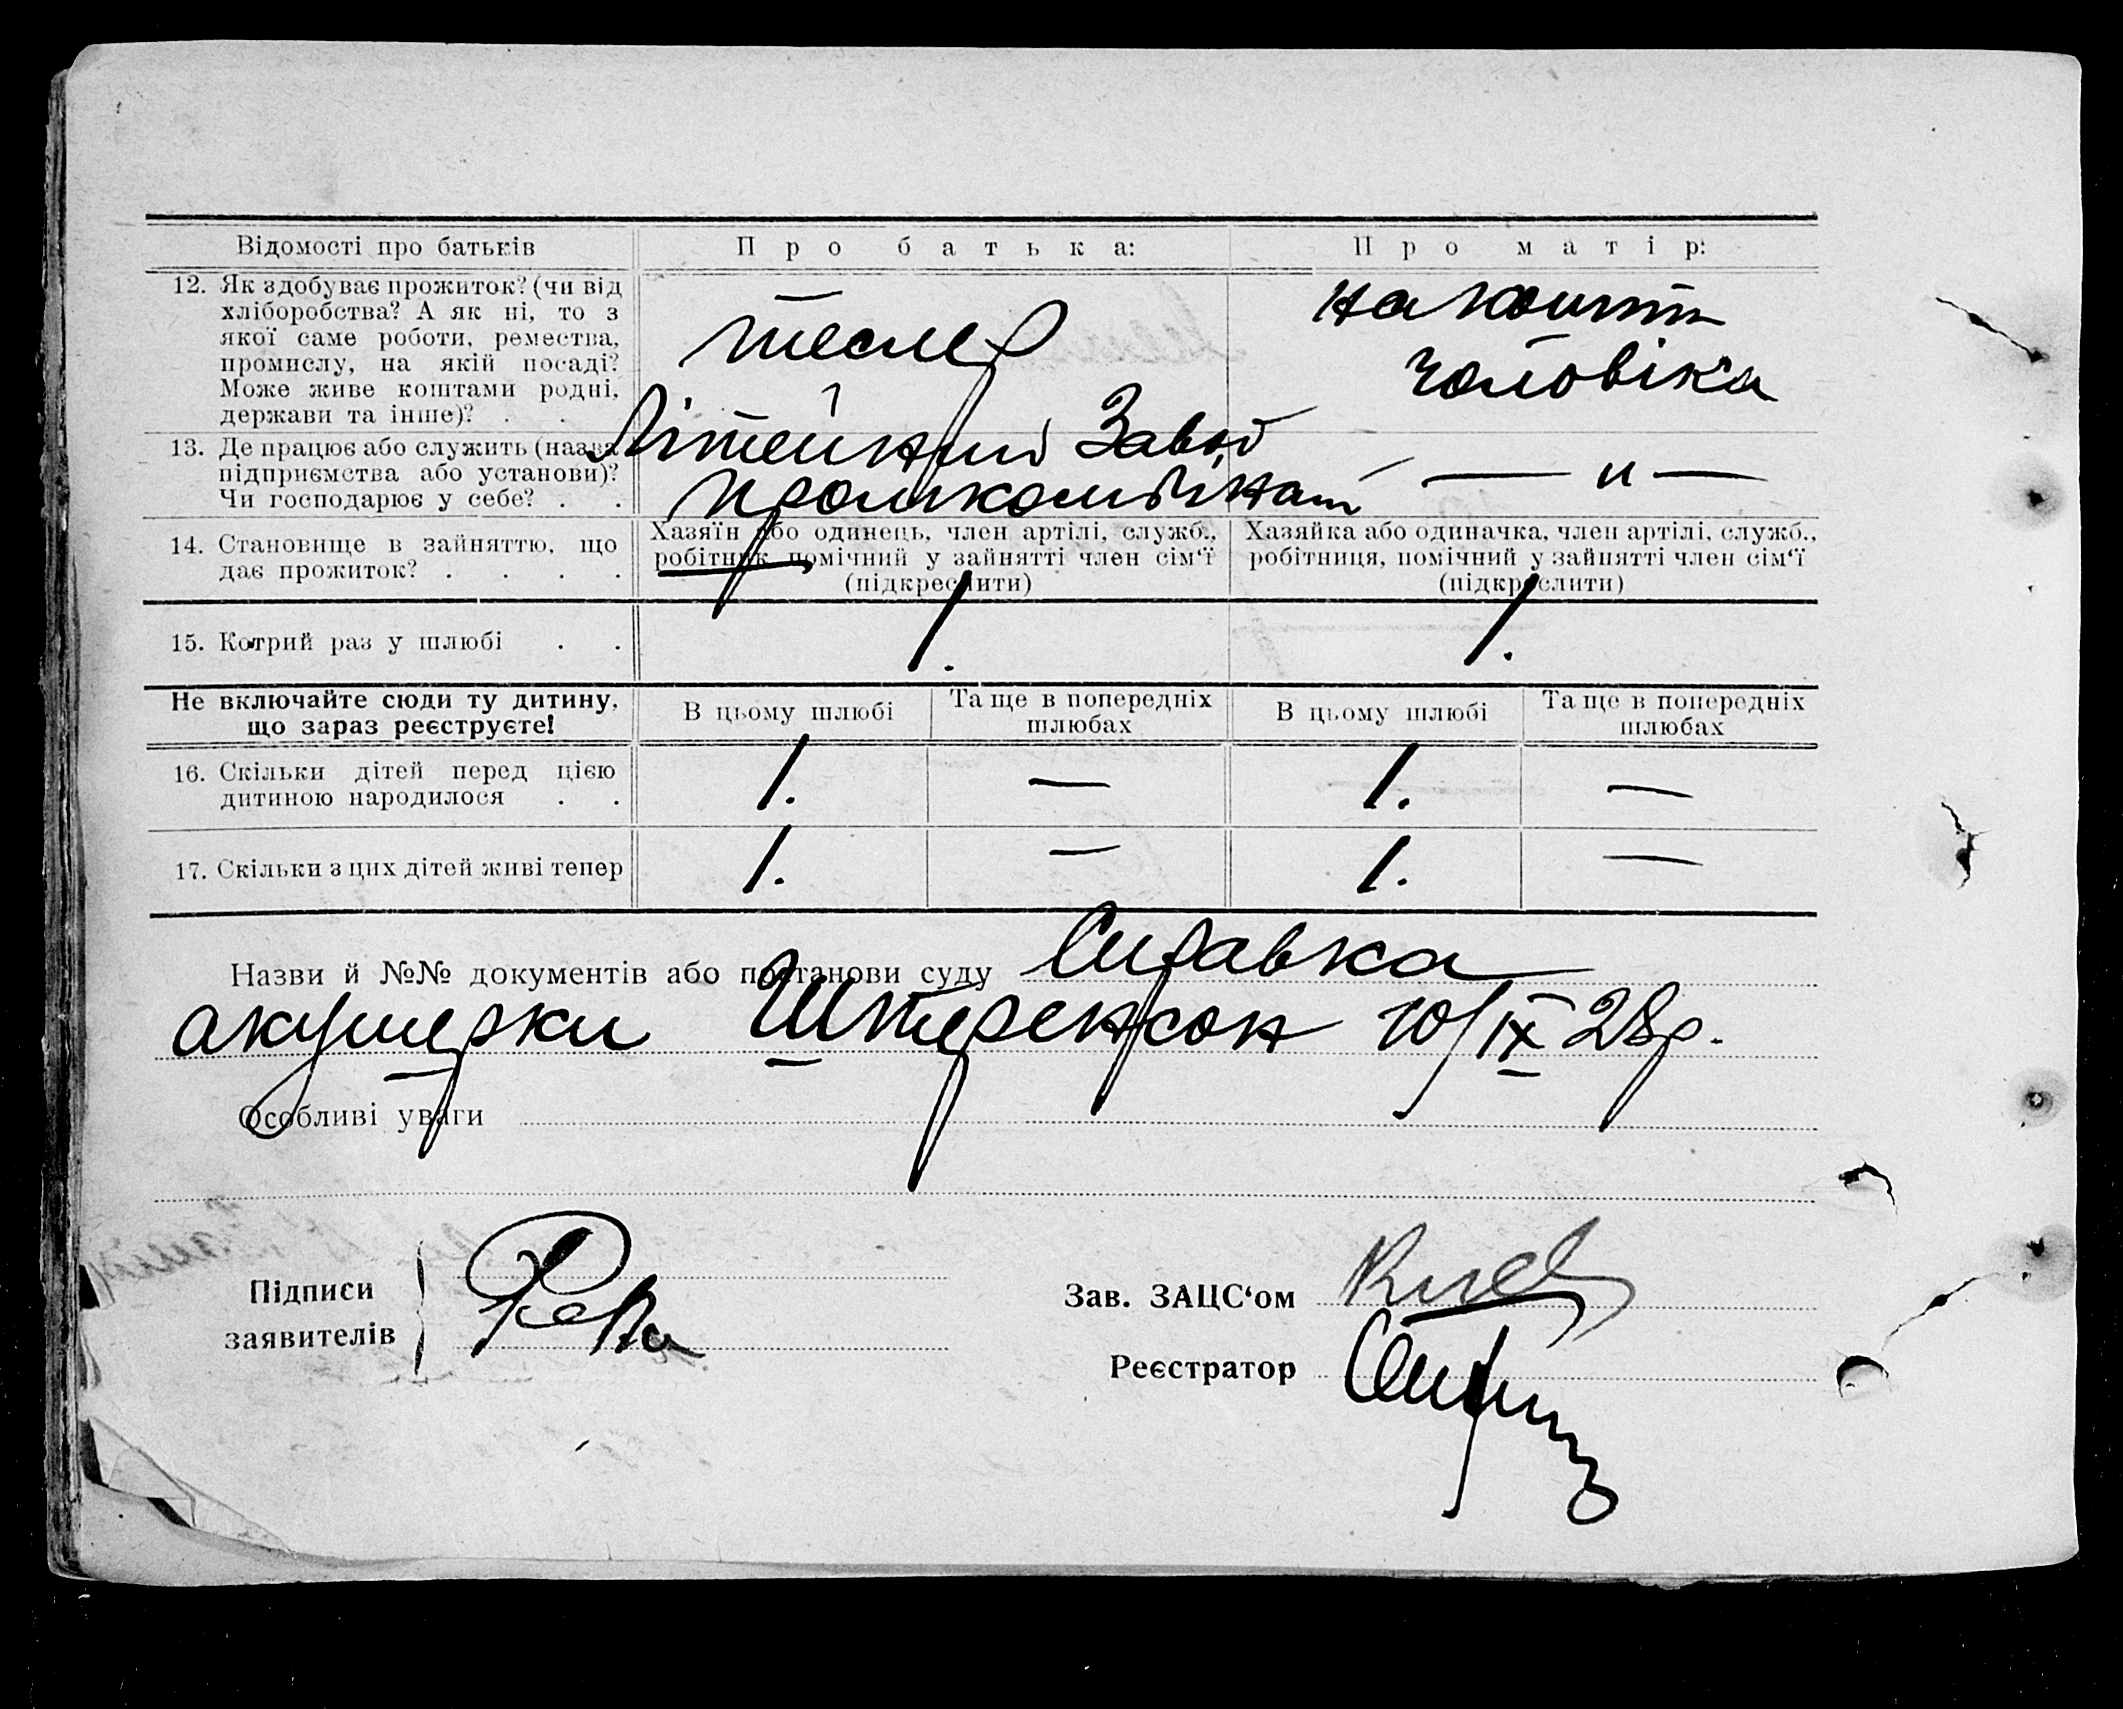 Відомості про батьків
Про батька:
Про матір:
12. Як здобуває прожиток? (чи від
хліборобства? А як ні, то з
якої саме роботи, ремества,
промислу, на якій посаді?
Може живе коштами родні,
держави та інше)? . .
тесляр
на кошти
чоловіка
13. Де працює або служить (назва
підприємства або установи)?
Чи господарює у себе? . .
Літейний Завод
промкомбінат
— и —
14. Становище в зайняттю, що
дає прожиток? . . . .
Хазяїн або одинець, член артілі, служб.,
робітник помічний у зайнятті член сім‘ї
(підкреслити)
Хазяйка або одиначка, член артілі, служб.,
робітниця, помічний у зайнятті член сім‘ї
(підкреслити)
15. Котрий раз у шлюбі . .
1.
1.
Не включайте сюди ту дитину,
що зараз реєструєте!
В цьому шлюбі
Та ще в попередніх
шлюбах
В цьому шлюбі
Та ще в попередніх
шлюбах
16. Скільки дітей перед цією
дитиною народилося . .
1.
—
1.
—
17. Скільки з цих дітей живі тепер
1.
—
1.
—
Назви й №№ документів або постанови суду Справка
акушерки Штеренсон 10/IX 28р.
Особливі уваги
Підписи
заявителів
Зав. ЗАЦС‘ом
Реєстратор